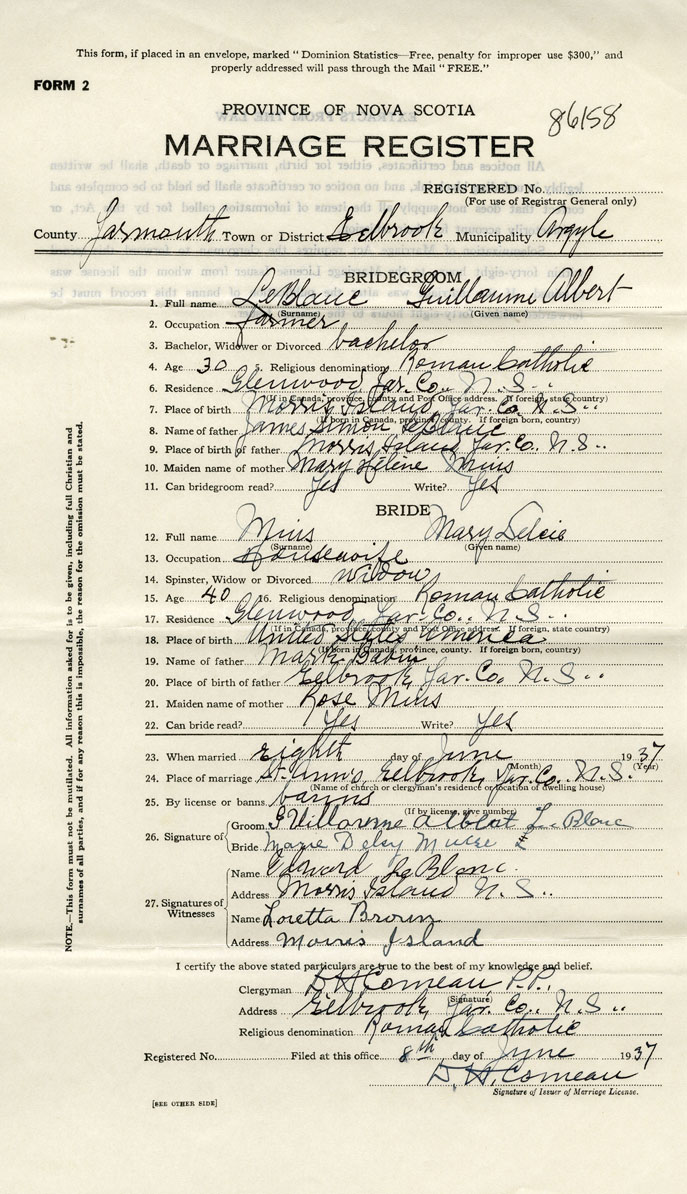 This form, if placed in an envelope, marked "Dominion Statistics—Free, penalty for improper use $300," and
properly addressed will pass through the Mail "FREE."
FORM 2
PROVINCE OF NOVA SCOTIA
86158
MARRIAGE REGISTER
REGISTERED No.
(For use of Registrar General only)
County Yarmouth Town or District Eelbrook Municipality Argyle
BRIDEGROOM
1. Full name LeBlanc Guillaume Albert
(Surname) (Given name)
2. Occupation farmer
3. Bachelor, Widower or Divorced bachelor
4. Age 30 5. Religious denomination Roman Catholic
6. Residence Glenwood, Yar. Co., N. S.
(If in Canada, province, county and Post Office address. If foreign, state county)
7. Place of birth Morris Island Yar. Co. N. S.
(If born in Canada, province, county. If foreign born, country)
8. Name of father James Simon LeBlanc
9. Place of birth of father Morris Island Yar. Co. N. S.
10. Maiden name of mother Mary Hélène Mius
11. Can bridegroom read? Yes Write? Yes
BRIDE
12. Full name Mius Mary Delcie
(Surname) (Given name)
13. Occupation Housewife
14. Spinster, Widow or Divorced widow
15. Age 40 16. Religious denomination Roman Catholic
17. Residence Glenwood Yar. Co., N. S.
(If in Canada, province, county and Post Office address. If foreign, state country)
18. Place of birth United States America
(If born in Canada, province, county. If foreign born, country)
19. Name of father Mark Babin
20. Place of birth of father Eelbrook, Yar. Co., N. S.
21. Maiden name of mother Rose Mius
22. Can bride read? Yes Write? Yes
23. When married eighth day of June 1937
(Month) (Year)
24. Place of marriage St. Ann's, Eelbrook, Yar. Co., N. S.
(Name of church or clergyman's residence or location of dwelling house)
25. By license or banns banns
(If by license, give number)
26. Signature of
Groom Albert Le Blanc
Bride Marie
27. Signatures of Witnesses
Name Edward LeBlanc
Address Morris Island N. S.
Name Loretta Brown
Address Morris Island
I certify the above stated particulars are true to the best of my knowledge and belief.
Clergyman D. H. Comeau P.P.,
(Signature)
Address Eelbrook, Yar. Co., N. S.
Religious denomination Roman Catholic
Registered No. Filed at this office 8th day of June 1937
D. H. Comeau
Signature of Issuer of Marriage License.
[SEE OTHER SIDE]
NOTE.—This form must not be mutilated. All information asked for is to be given, including full Christian and
surnames of all parties, and if for any reason this is impossible, the reason for the omission must be stated.